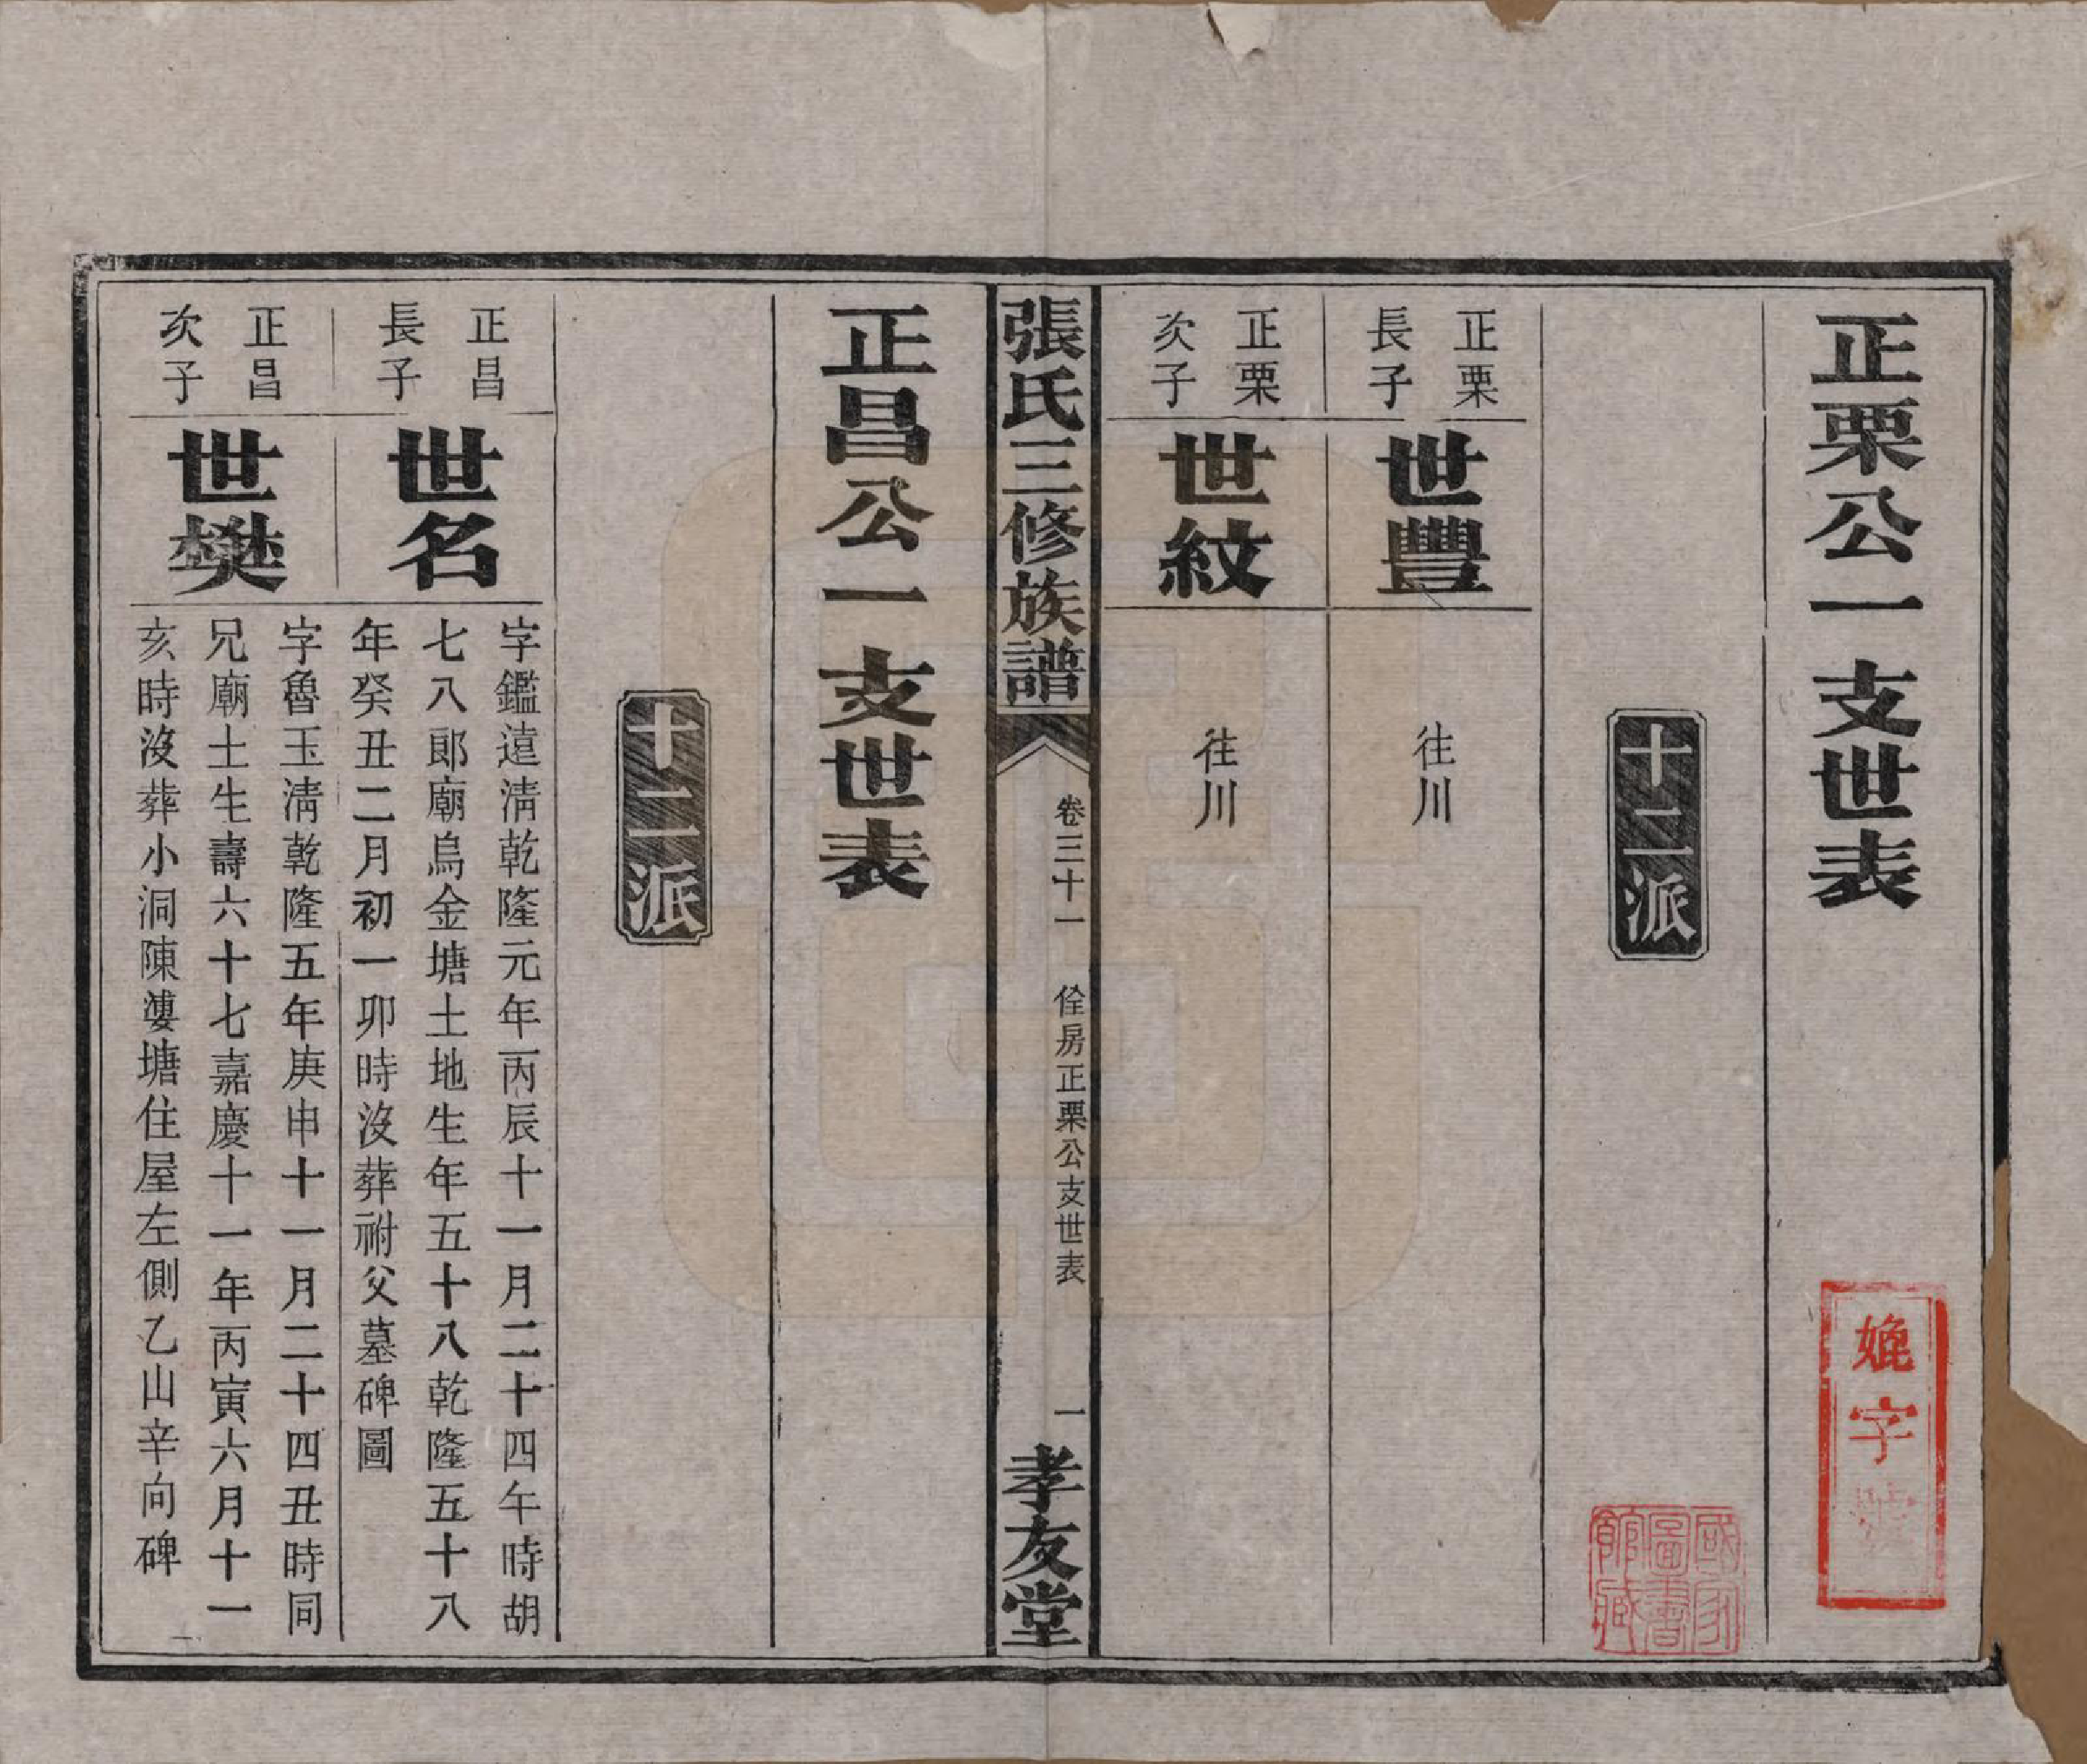 正栗公一支世表
十二派
正栗
長子
世豐
往川
正栗
次子
世紋
往川
張氏三修族譜
卷三十一
佺房正栗公支世表
一
孝友堂
正昌公一支世表
十二派
正昌
長子
世名
字鑑遠淸乾隆元年丙辰十一月二十四午時胡
七八郎廟烏金塘土地生年五十八乾隆五十八
年癸丑二月初一卯時沒葬祔父墓碑圖
正昌
次子
世樊
字魯玉淸乾隆五年庚申十一月二十四丑時同
兄廟土生壽六十七嘉慶十一年丙寅六月十一
亥時沒葬小洞陳漊塘住屋左側乙山辛向碑
字
國家
圖書
館藏